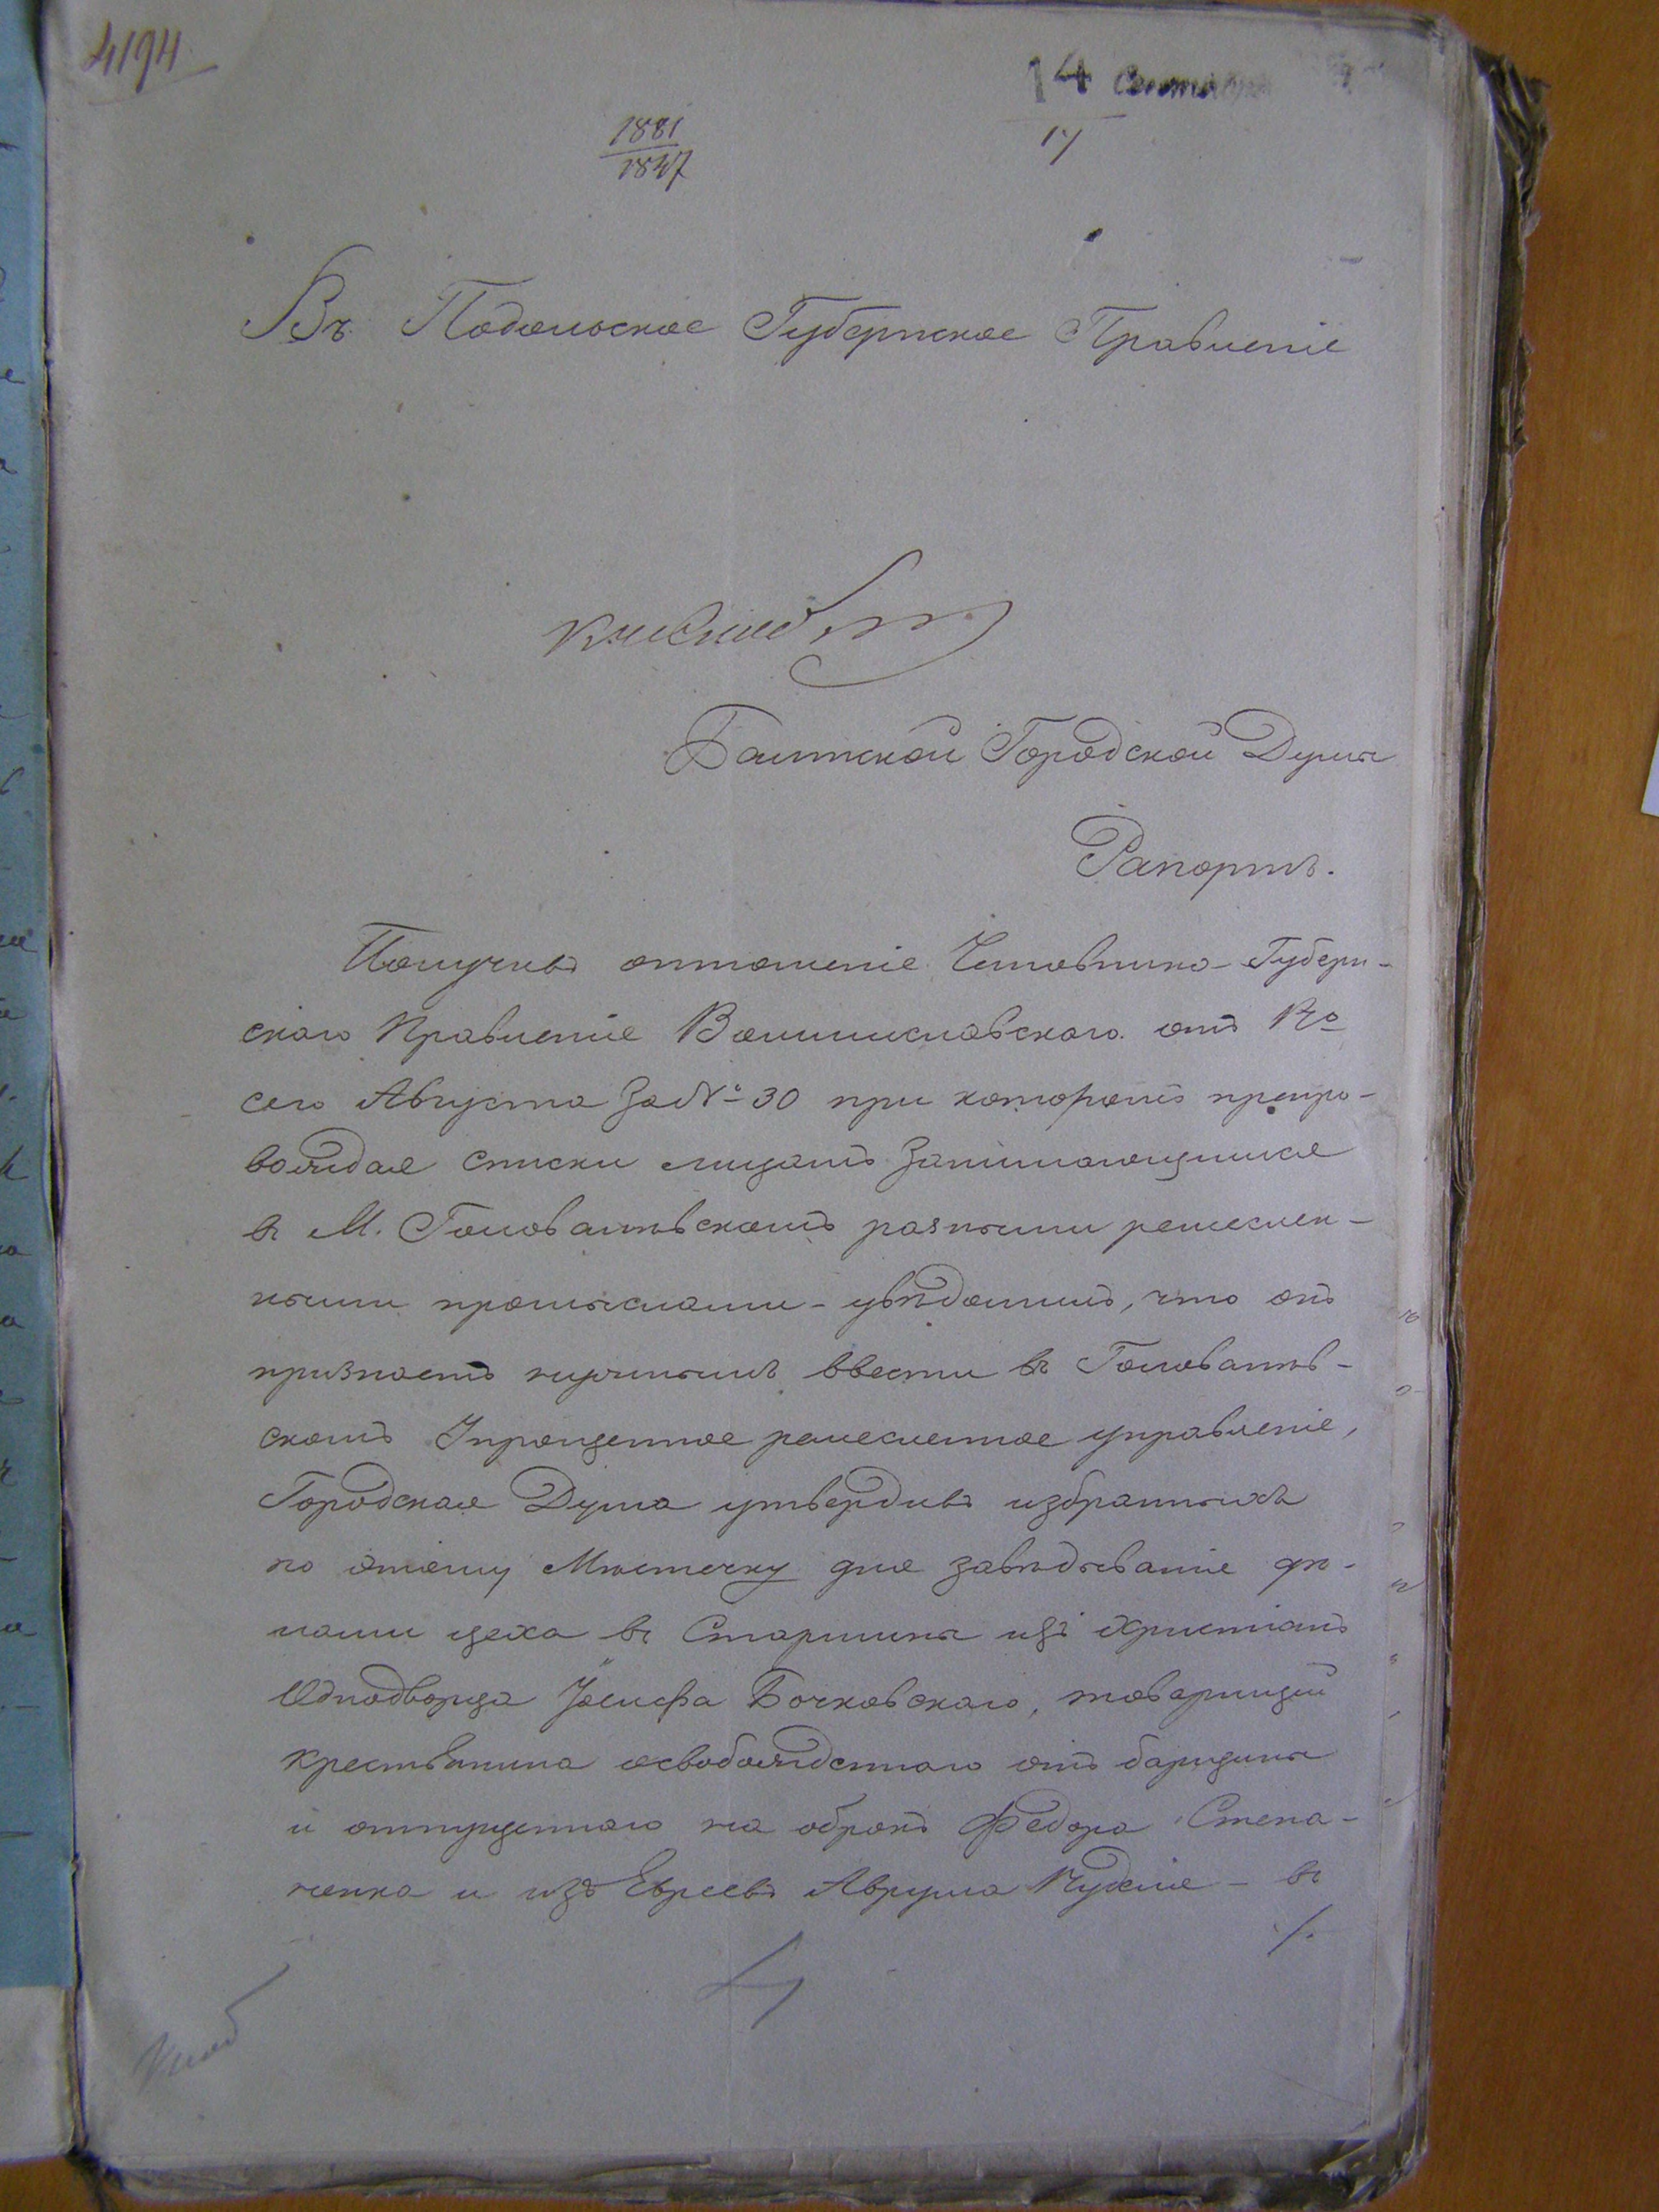 4194
14 Сентября
17
1881
1847
Въ Подольское Губернское Правленіе
Балтской Городской Думы
Рапортъ.
Получивъ отношеніе Чиновника Губерн-
скаго Правленіе отъ
сего Августа за № 30 при которомъ препро-
вождая списки лицамъ занимающимся
въ М. Головатевскомъ разными ремеслен-
ными промыслами - увѣдомилъ, что онъ
признаетъ нужнымъ ввести въ Головатев-
скомъ Упрощенное ремесленное управленіе,
Городская Дума утвердивъ избранныхъ
по этому Мѣстечку для завѣдыванія дѣ-
лами цеха въ Старшины изъ христіанъ
Однодворца Іосифа Бочковскаго, товарищей
крестьянина освобожденнаго отъ барщины
и отпущеннаго на оброкъ Федора Степа-
ненка и изъ Евреевъ Аврума - въ
/.